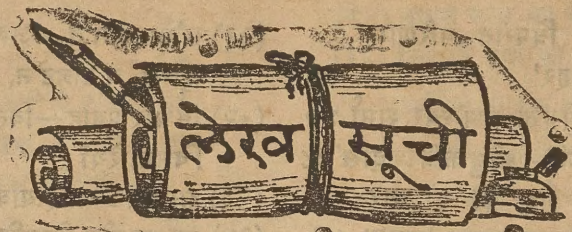 लेख सूची